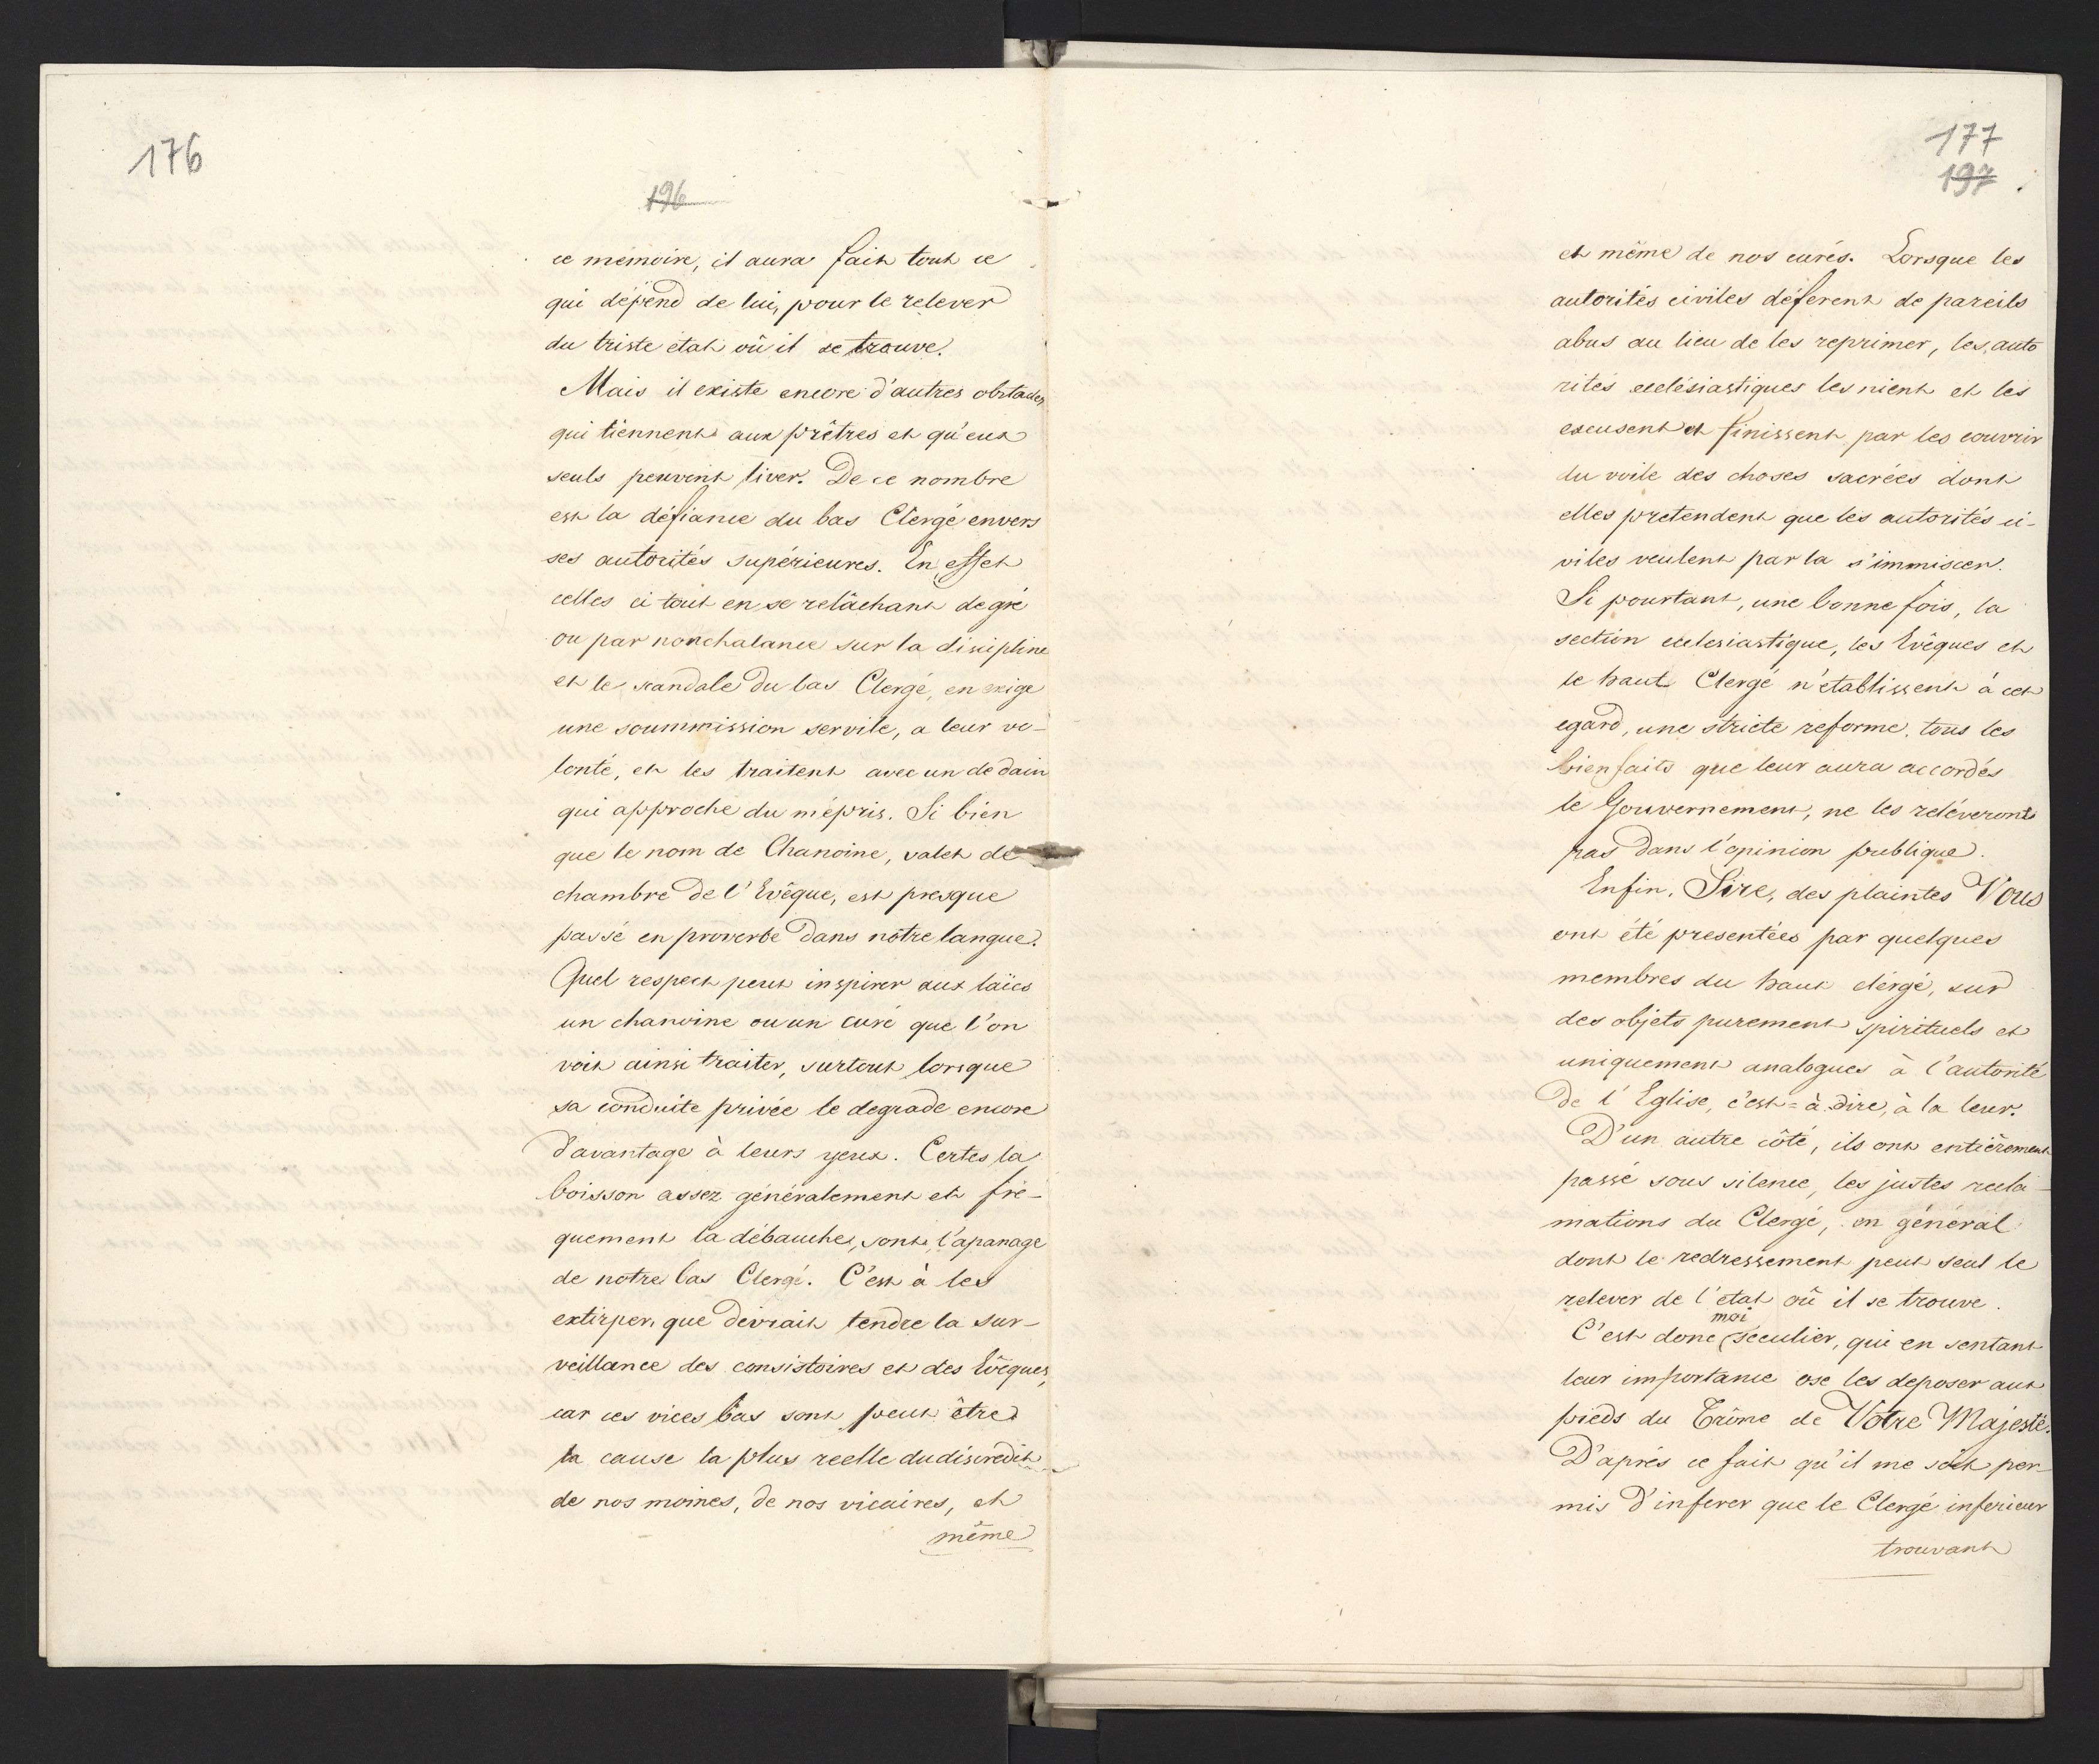 176
196
ce mémoire, il aura fait tout ce
qui dépend de lui, pour le relever
du triste état où il se trouve.
Mais il existe encore d'autres obstacles
qui tiennent aux prêtres et qu'eux
seuls peuvent liver. De ce nombre
est la défiance du bas Clergé envers
ses autorités supérieures. En effet
celles ci tout en se relâchant de gré
ou par nonchalance sur la discipline
et le scandale du bas Clergé, en exige
une soummission servile, a leur vo-
lonté, et les traitent avec un dedain
qui approche du mépris. Si bien
que le nom de Chanoine, valet de
chambre de l'Evêque, est presque
passé en proverbe dans nôtre langue.
Quel respect peut inspirer aux laïcs
un chanoine ou un curé que l'on
voit ainsi traiter, surtout lorsque
sa conduite privée le degrade encore
d'avantage à leurs yeux. Certes la
boisson assez généralement et fré-
quement la débauche, sont l'apanage
de notre bas Clergé. C'est à les
extirper, que devrait tendre la sur-
veillance des consistoires et des Evêques,
car ces vices bas sont peut être
la cause la plus reelle du discredit
de nos moines, de nos vicaires, et
même
177
197
et même de nos curés. Lorsque les
autorités civiles déferent de pareils
abus au lieu de les reprimer, les auto
rités ecclésiastiques les nient et les
excusent et finissent par les couvrir
du voile des choses sacrées dont
elles pretendent que les autorités ci-
viles veulent par la s'immiscer.
Si pourtant, une bonne fois, la
section ecclesiastique, les Evêques et
le haut Clergé n'établissent à cet
egard, une stricte reforme, tous les
bienfaits que leur aura accordés
le Gouvernement, ne les reléveront
pas dans l'opinion publique.
Enfin, Sire, des plaintes Vous
ont été presentées par quelques
membres du haut clérgé, sur
des objets purement spirituels et
uniquement analogues à l'autorité
de l'Eglise, c'est=à dire, à la leur.
D'un autre côté, ils ont entièrement
passé sous silence, les justes recla-
mations du Clergé, en général
dont le redressement peut seul le
relever de l'etat où il se trouve.
moi
C'est donc seculier, qui en sentant
leur importance ose les deposer aux
pieds du Trône de Votre Majesté.
D'après ce fait qu'il me soit per-
mis d'inferer que le Clergé inferieur
trouvant